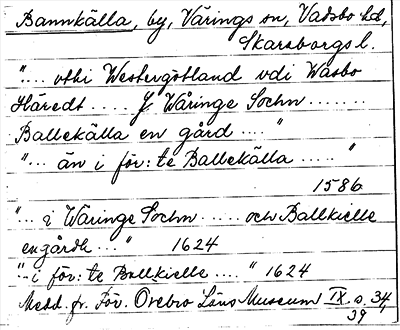 Bannkälla, by, Värings sn, Vadsbo hd,
Skaraborgs l.
"... uthi Westergötland vdi Wasbo
Häredt ..... J Wåringe Sochn .......
Ballekälla en gård ...."
"... än i för: te Ballekälla ..... "
1586
"... i Wåringe Sochn ..... och Ballkielle
en gårdh ..." 1624
"- i för: te Ballkielle .... " 1624
Medd. fr. För. Örebro Läns Museum IX. s. 34,
39